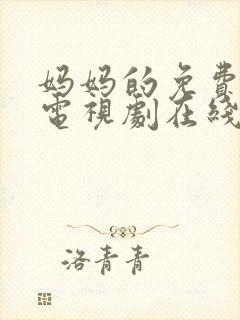 妈妈的免費
電視劇在綫
洛青青